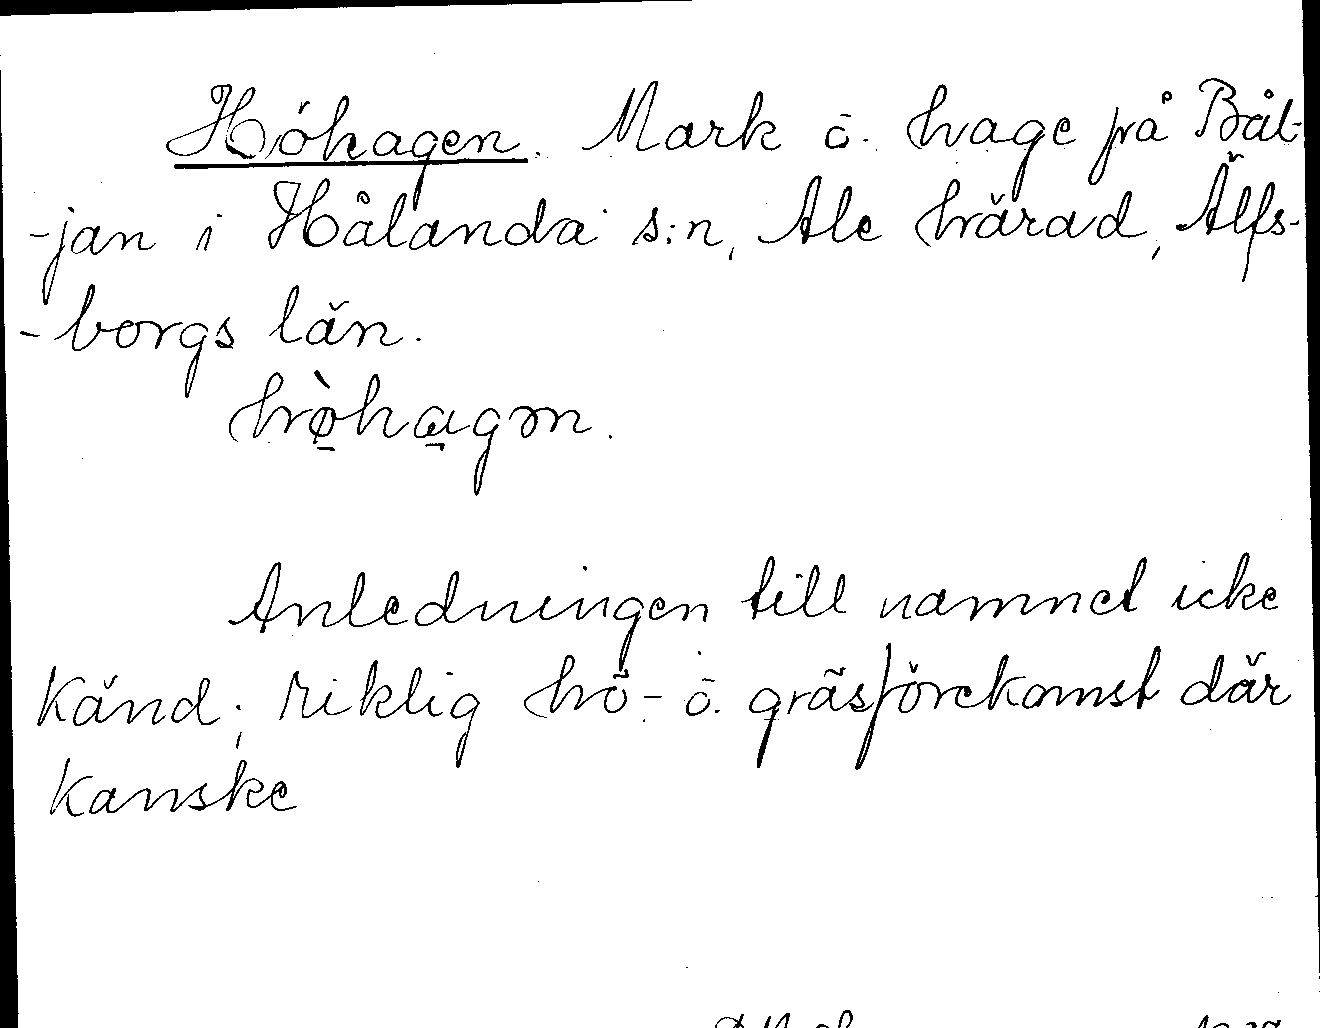 Höhagen. Mark o. hage på Bål-
-jan i Hålanda s:n, Ale härad, Älfs-
-borgs län.
hø̀hagən.
Anledningen till namnet icke
känd; riklig hö- o. gräsförekomst där
kanske